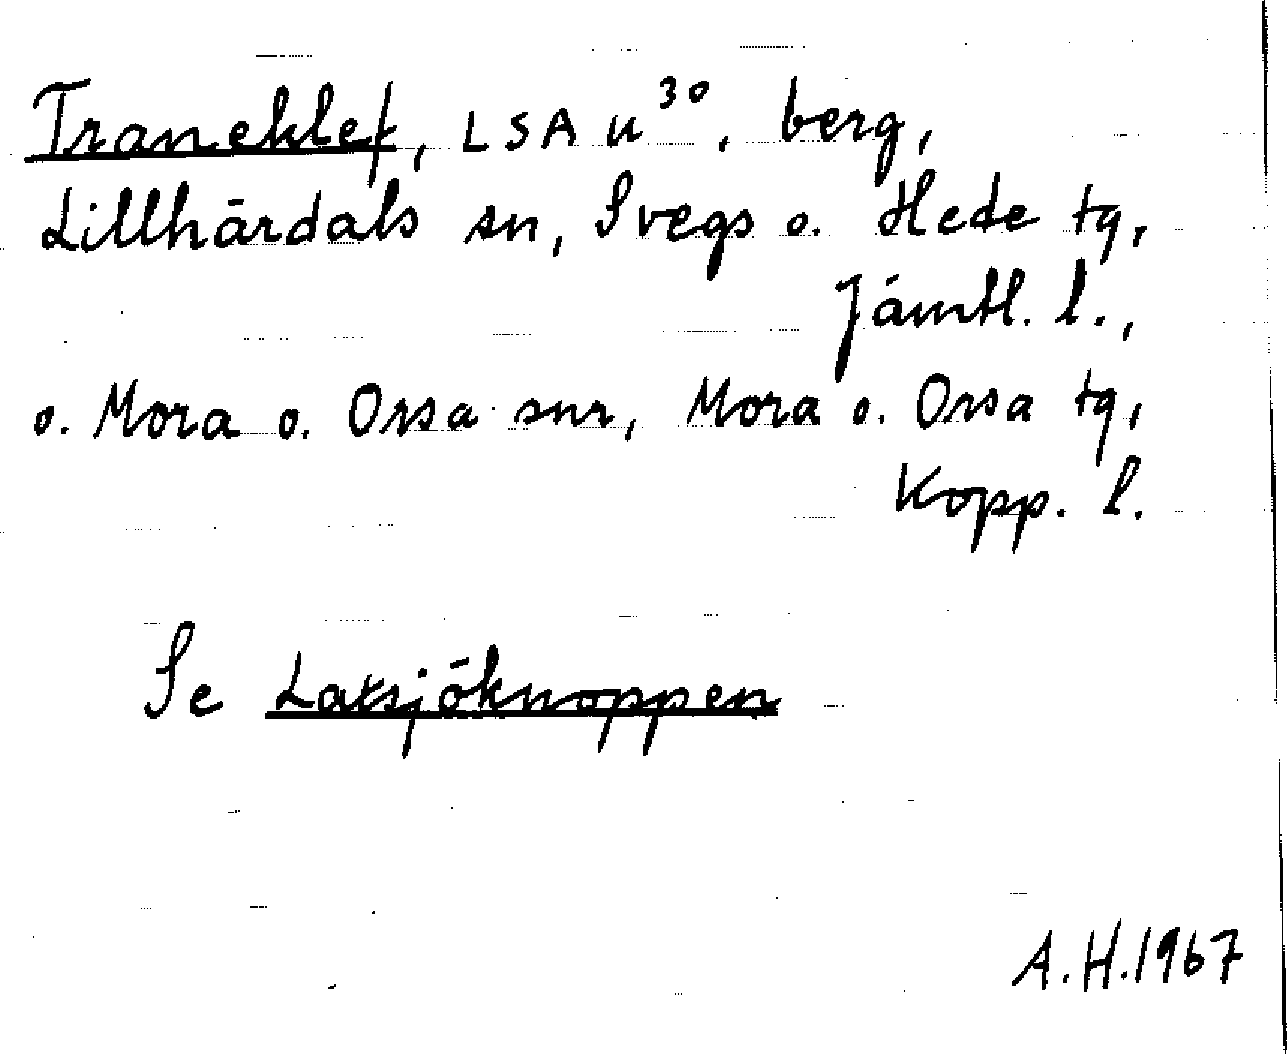 Traneklef, LSA u³⁰, berg,
Lillhärdals sn, Svegs o. Hede tg,
Jämtl. l.,
o. Mora o. Orsa snr, Mora o. Orsa tg,
Kopp. l.
Se Laksjöknoppen
A.H.1967